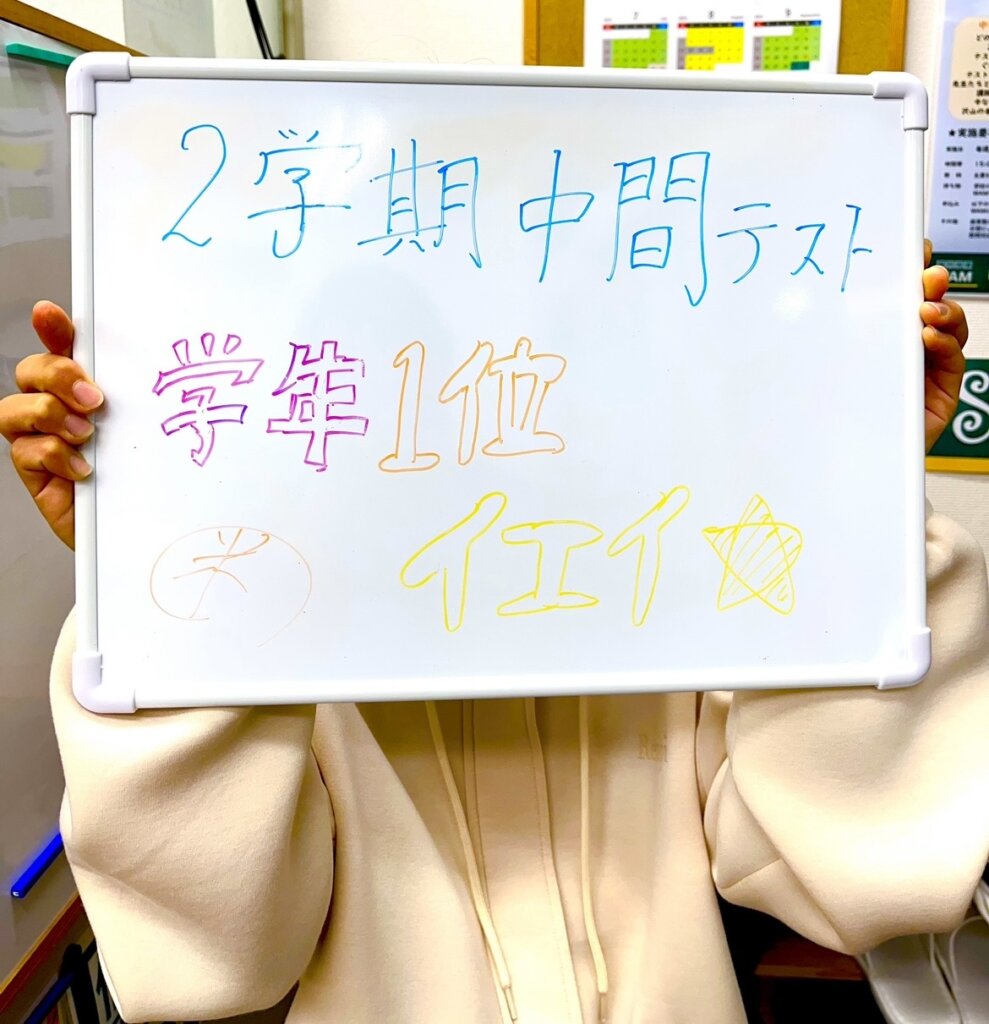 2学期中間テスト
学年1位
イエイ☆
7
8
9
AM
Rei